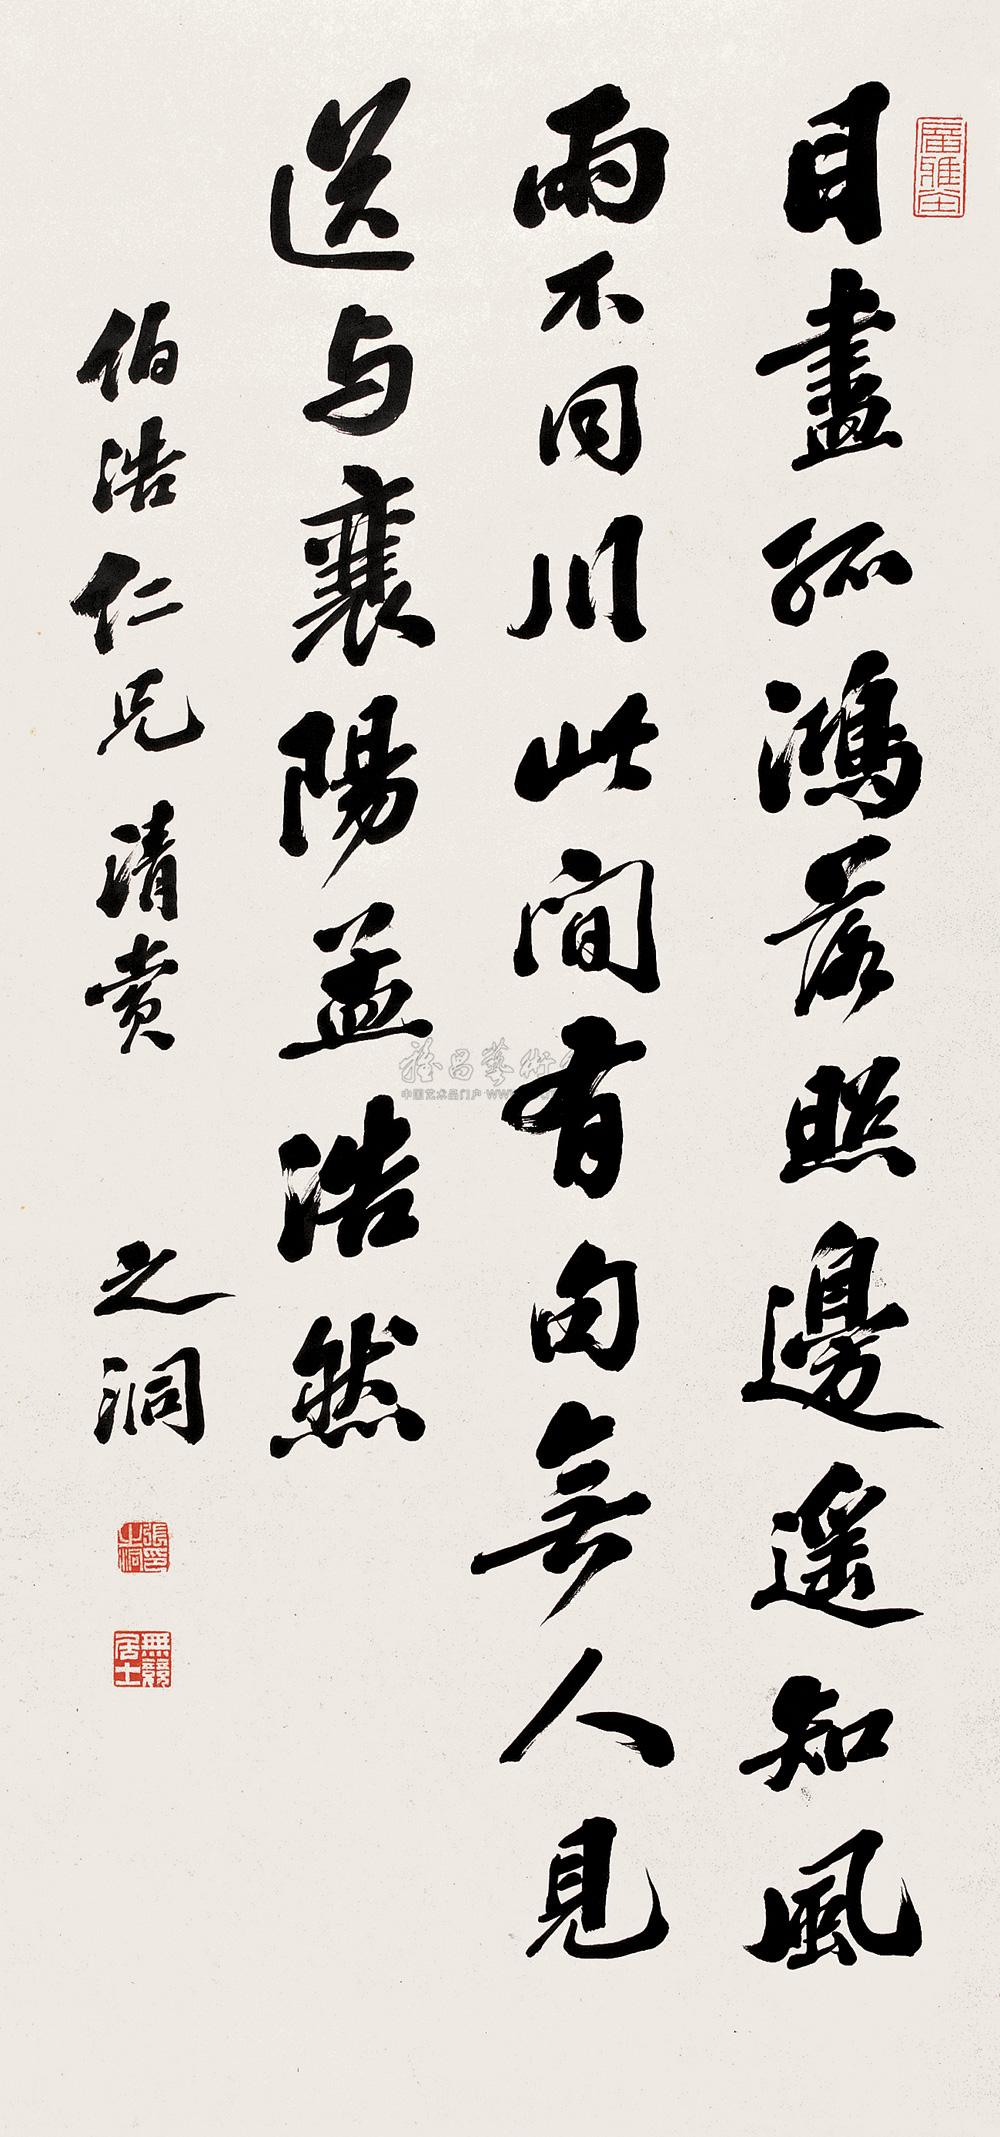 目盡孤鴻落照邊遥知風
雨不同川此間有句無人見
送与襄陽孟浩然
伯浩仁兄清賞
之洞
廣雅
張之洞印
無競居士
中国艺术品门户